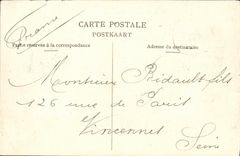 France
CARTE POSTALE
POSTKAART
Partie réservée à la correspondance
Adresse du destinataire
Monsieur Ridault fils
126 rue de Paris
Vincennes
Seine